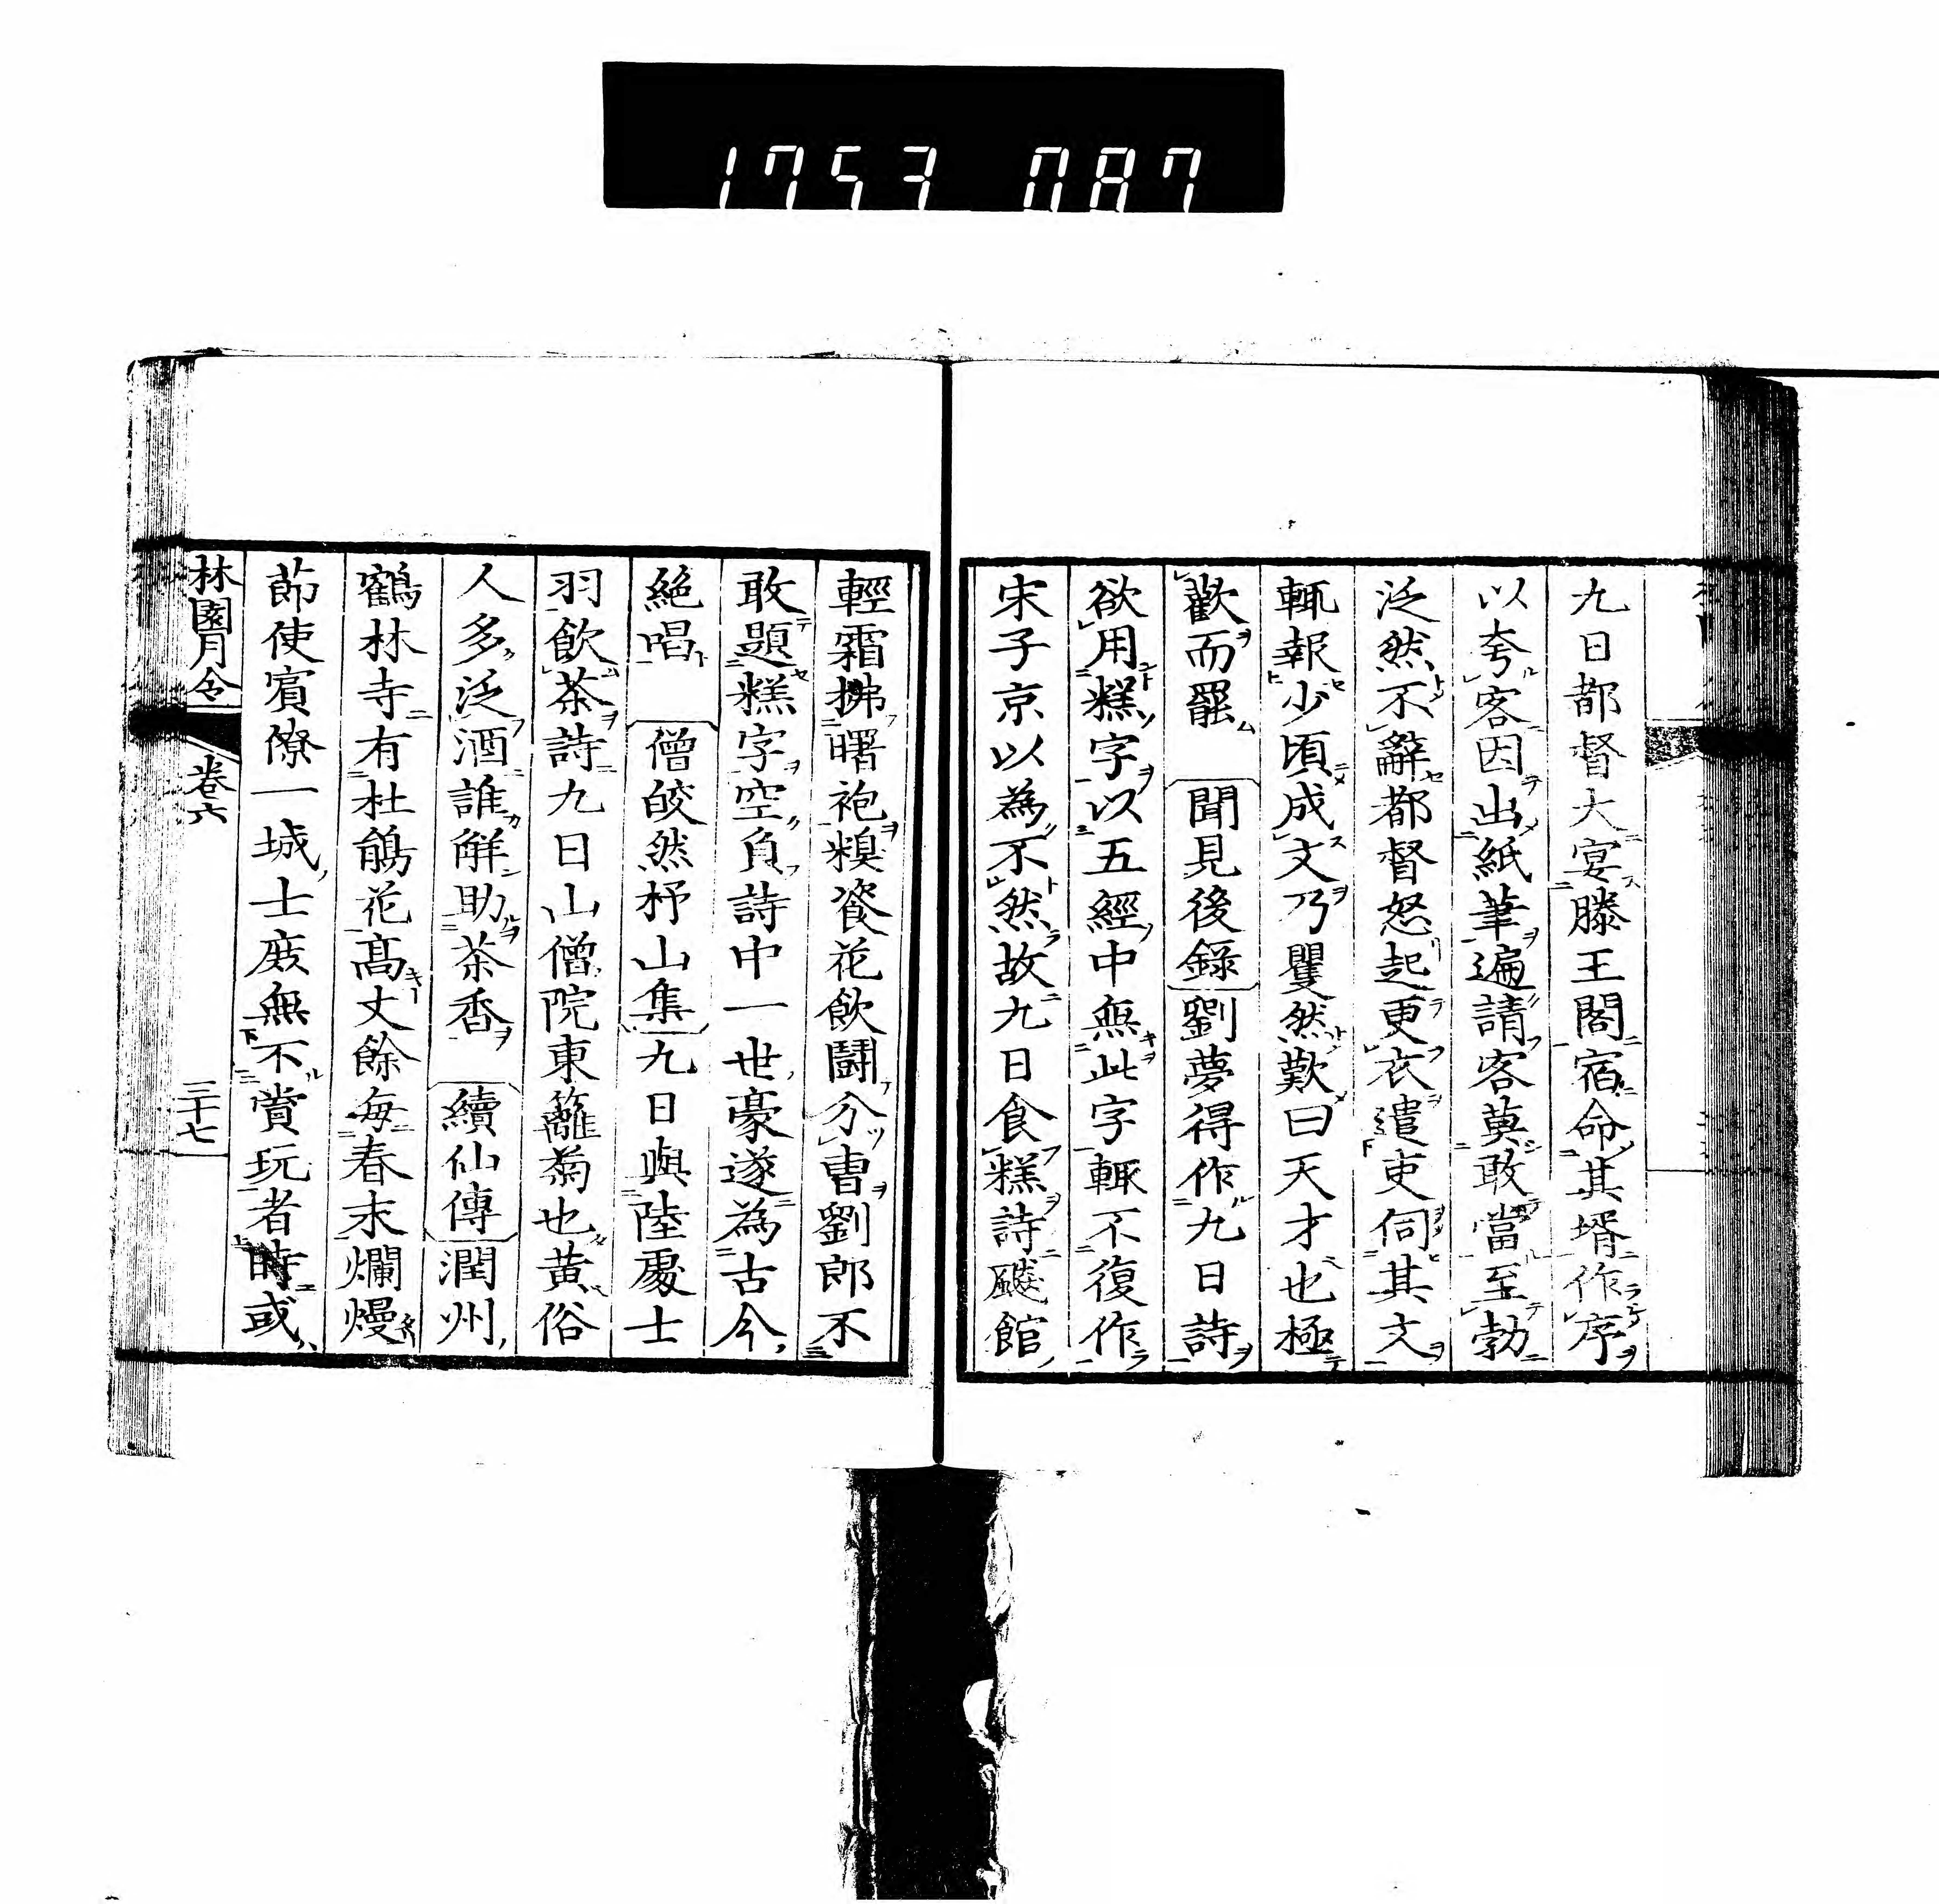 1753 087
九日都督大宴滕王閣宿命其壻作序
以夸客因出紙筆遍請客莫敢當至勃
泛然不辭都督怒起更衣遣吏伺其文
輒報少頃成文乃瞿然歎曰天才也極
歡而罷 聞見後錄 劉夢得作九日詩
欲用糕字以五經中無此字輒不復作
宋子京以為不然故九日食糕詩飈館
輕霜拂曙袍糗餈花飲鬪分曺劉郎不
敢題糕字空負詩中一世豪遂為古今
絕唱 僧皎然杼山集 九日與陸處士
羽飲茶詩九日山僧院東籬菊也黃俗
人多泛酒誰解助茶香 續仙傳 潤州
鶴林寺有杜鵑花高丈餘每春末爛熳
節使賓僚一城士庻無不賞玩者時或
林園月令 卷六 三十七